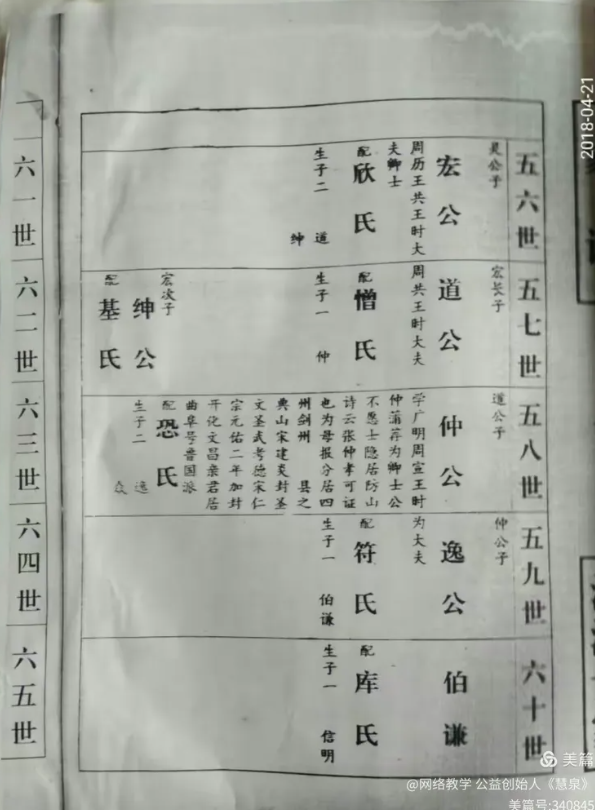 五六世
灵公子
宏公
周历王共王时大
夫卿士
配
欣氏
生子二 道
绅
五七世
宏长子
道公
周共王时大夫
配
憎氏
生子一 仲
宏次子
绅公
配
基氏
五八世
道公子
仲公
学广明周宣王时
仲蒲荐为卿士公
不愿士隐居防山
诗云张仲孝可证
也为母报分居四
州剑州 县之
典山宋建炎封圣
文圣武考德宋仁
宗元佑二年加封
开化文昌亲君居
曲阜号晋国派
配
恐氏
生子二 逸
五九世
仲公子
逸公
为大夫
配
符氏
生子一 伯谦
六十世
伯谦
配
库氏
生子一 信明
六一世
六二世
六三世
六四世
六五世
2018-04-21
美篇
@网络教学 公益创始人《慧泉》
美篇号:340845